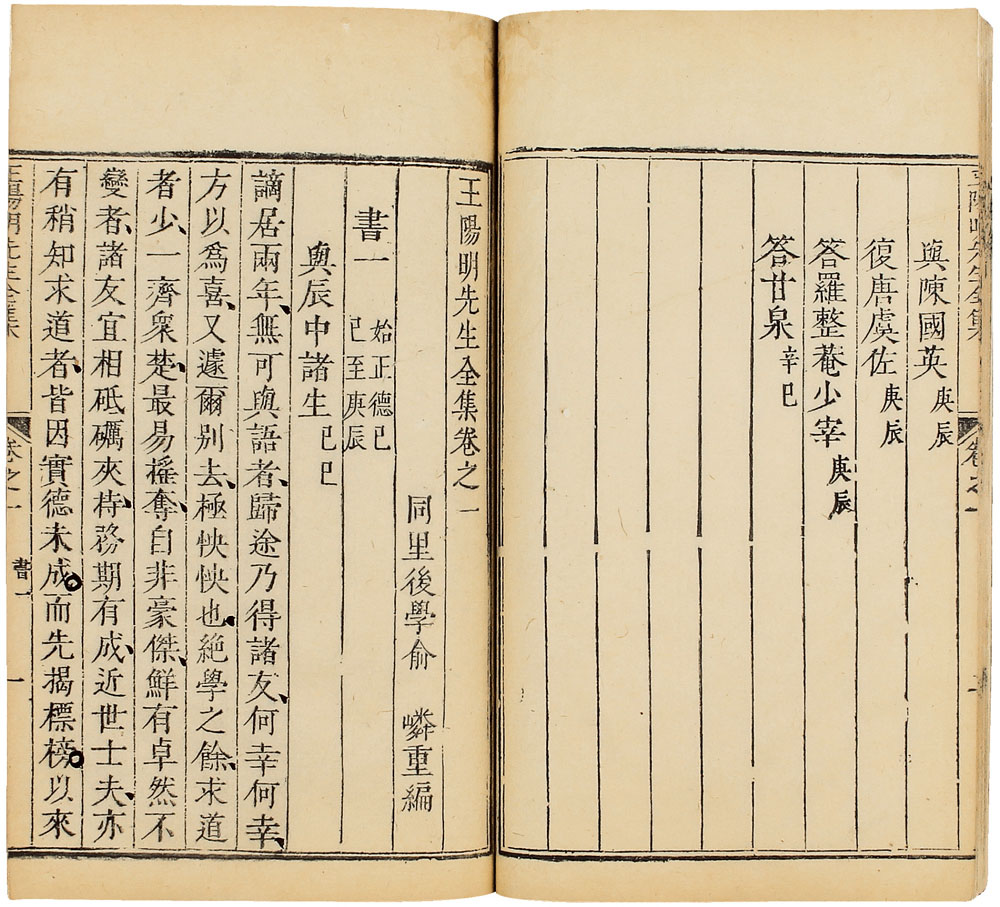 王陽明先生全集
卷之一
與陳國英 庚辰
復唐虞佐 庚辰
答羅整菴少宰 庚辰
答甘泉 辛巳
王陽明先生全集卷之一
同里後學俞 嶙重編
書一 始正德己
巳至庚辰
與辰中諸生 己巳
謫居兩年、無可與語者、歸途乃得諸友、何幸何幸、
方以爲喜、又遽爾別去、極怏怏也、絕學之餘、求道
者少、一齊衆楚、最易搖奪、自非豪傑、鮮有卓然不
變者、諸友宜相砥礪夾持、務期有成、近世士夫、亦
有稍知求道者、皆因實德未成。而先揭標榜。以來
王陽明先生全集
卷之一
書一
一